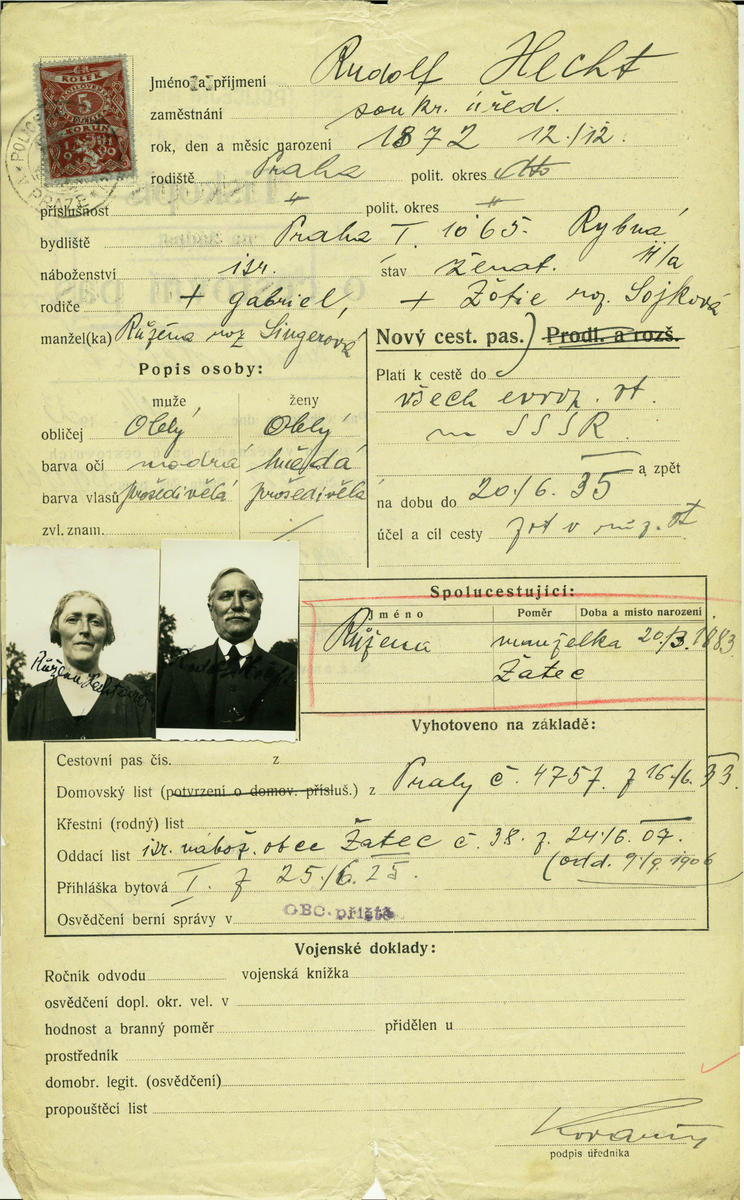 KOLEK
5
KORUN
POLICE
V PRAZE
Jméno a příjmení Rudolf Hecht
zaměstnání soukr. úřed.
rok, den a měsíc narození 1872 12./12.
rodiště Praha polit. okres
příslušnost " polit. okres "
bydliště Praha I. 1065. Rybná
náboženství isr. stav ženat. II/a
rodiče + Gabriel, + Žofie roz. Sojková
manžel(ka) Růžena roz Singerová
Nový cest. pas. Prodl. a rozš.
Popis osoby:
muže ženy
obličej Oblý Oblý
barva očí modrá hnědá
barva vlasů prošedivělá prošedivělá
zvl. znam.
Platí k cestě do
všech evrop. st.
SSSR.
a zpět
na dobu do 20./6. 35
účel a cíl cesty
Spolucestující:
Jméno Poměr Doba a místo narození
Růžena manželka 20/3. 1883
Žatec
Vyhotoveno na základě:
Cestovní pas čís. z
Domovský list (potvrzení o domov. přísluš.) z Prahy č. 4757. z 16./6. 33
Křestní (rodný) list
Oddací list isr. nábož. obce Žatec č. 38. z. 24./6. 07.
(odd. 9./9. 1906
Přihláška bytová I. z 25./6. 25.
Osvědčení berní správy v OBC. příště
Vojenské doklady:
Ročník odvodu vojenská knížka
osvědčení dopl. okr. vel. v
hodnost a branný poměr přidělen u
prostředník
domobr. legit. (osvědčení)
propouštěcí list
podpis úředníka